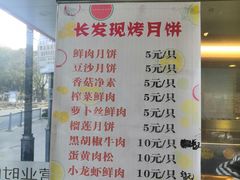 长发现烤月饼
鲜肉月饼 5元/只
豆沙月饼 5元/只
香菇净素 5元/只
榨菜鲜肉 5元/只
萝卜丝鲜肉 5元/只
榴莲月饼 5元/只
黑胡椒牛肉 10元/只
蛋黄肉松 10元/只
小龙虾鲜肉 10元/只